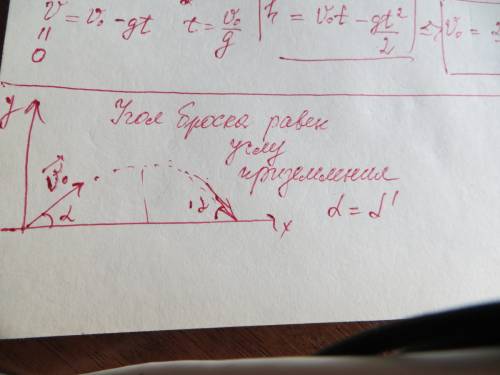 V = v₀ - gt t = v₀/g h = v₀t - gt²/2 => v₀ =
॥
0
y Угол броска равен
углу
приземления
v⃗₀ α α' x α = α'